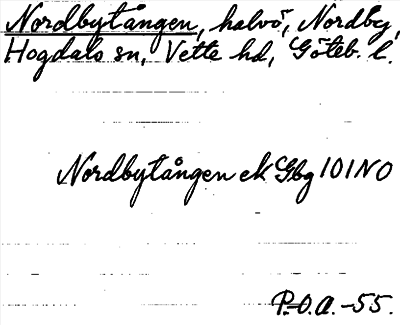 Nordbytången, halvö, Nordby,
Hogdals sn, Vette hd, Göteb. l.
Nordbytången ek Gbg 101NO
P.-O.A. -55.